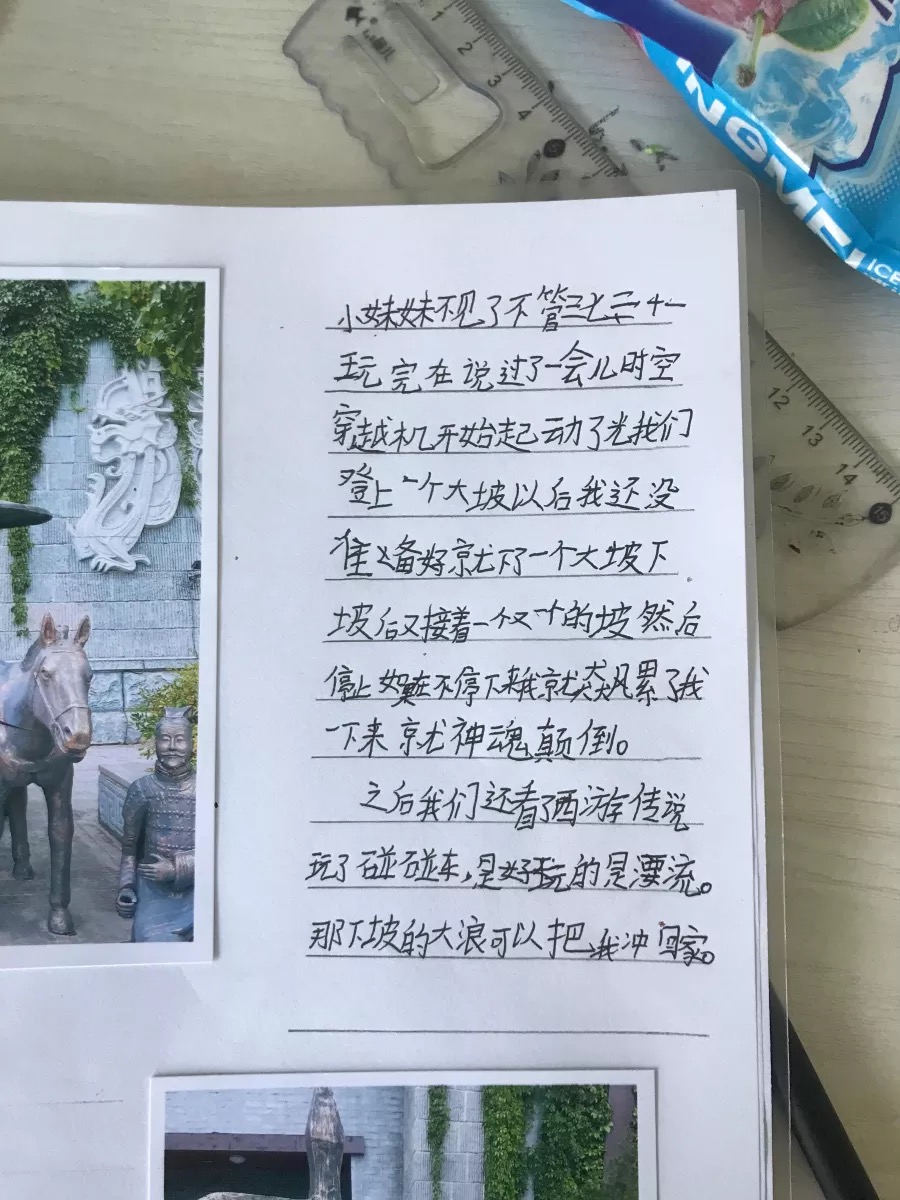 1
2
3
4
NGME
ICE
12
13
14
15
小妹妹不见了不管三七二十一
玩完在说过了一会儿时空
穿越机开始起动了光我们
登上一个大坡以后我还没
准备好就下了一个大坡下
坡后又接着一个又一个的坡然后
停止如在不停下来我就风累了我
一下来就神魂颠倒。
之后我们还看了西游传说
玩了碰碰车,是好玩的是漂流。
那下坡的大浪可以把我冲回家。